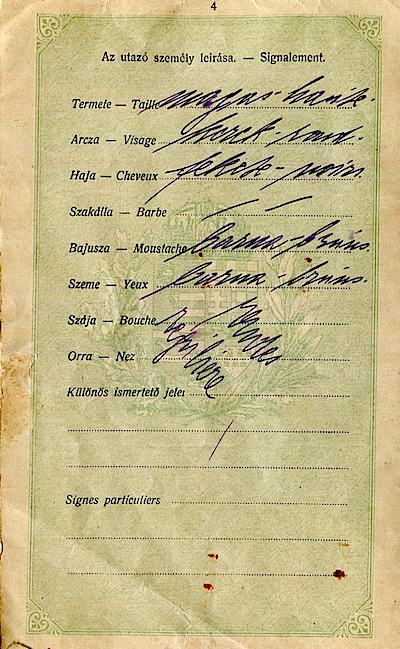 4
Az utazó személy leirása. — Signalement.
Termete — Taille magas - haute.
Arcza — Visage kerek - rond.
Haja — Cheveux fekete - noir.
Szakálla — Barbe — —
Bajusza — Moustache barna - bruns.
Szeme — Yeux barna bruns.
Szája — Bouche rendes
Orra — Nez régulière
Különös ismertető jelei
Signes particuliers